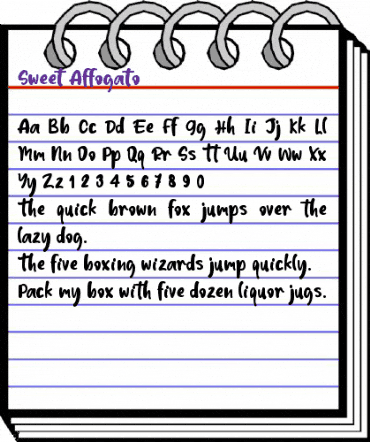 Sweet Affogato
Aa Bb Cc Dd Ee Ff Gg Hh Ii Jj Kk Ll
Mm Nn Oo Pp Qq Rr Ss Tt Uu Vv Ww Xx
Yy Zz 1 2 3 4 5 6 7 8 9 0
The quick brown fox jumps over the
lazy dog.
The five boxing wizards jump quickly.
Pack my box with five dozen liquor jugs.